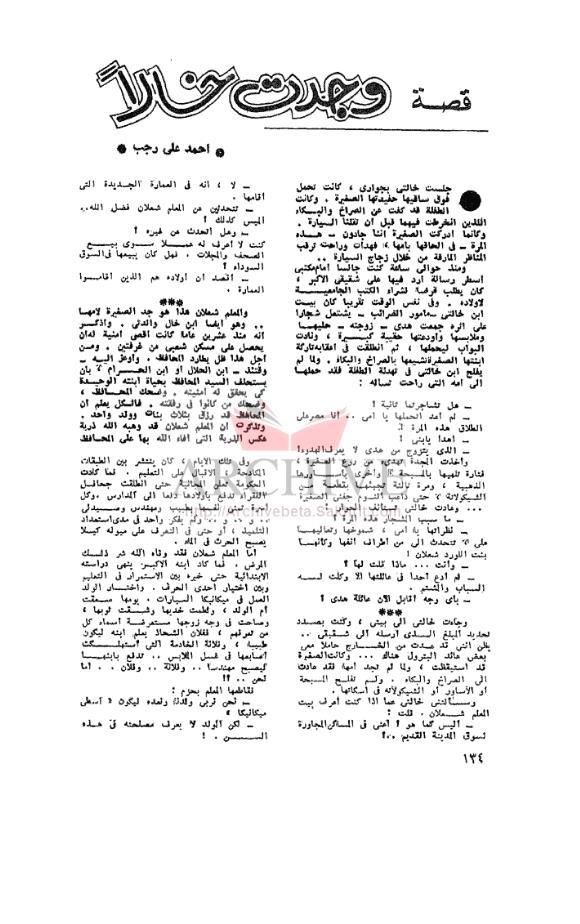 قصة
وجدت خازاً
* احمد على رجب *
جلست خالتى بجوارى ، كانت تحمل
فوق ساقيها حفيدتها الصغيرة . وكانت
الطفلة قد كفت عن الصراخ والبكاء
اللذين انخرطت فيهما قبل أن تقلنا السيارة .
وكأنما أدركت الصغيرة أننا جادون - هذه
المرة - فى الحاقها بأمها ، فهدأت وراحت ترقب
المناظر المارقة من خلال زجاج السيارة ..
ومنذ حوالى ساعة كنت جالسا أمام مكتبى
أسطر رسالة أرد فيها على شقيقى الأكبر ،
كان يطلب قرضه لشراء الكتب الجامعية
لأولاده . وفى نفس الوقت تقريبا كان بيت
ابن خالتى - مأمور الضرائب - يشتعل شجارا
على أثره جمعت هدى - زوجته - حليها
وملابسها وأودعتها حقيبة كبيرة ، ونادت
البواب ليحملها ، ثم انطلقت فى أعقابه تاركة
ابنتها الصغيرة نشيعها بالصراخ والبكاء . ولما لم
يفلح ابن خالتى فى تهدئة الطفلة فقد حملها
الى أمه التى راحت تسأله :
- هل تشاجرتما ثانية !
- لم أعد أتحملها يا أمى .. أنا مصر على
الطلاق هذه المرة !
- اهدأ يابنى !
- الذى يتزوج من هدى لا يعرف الهدوء !
وأخذت الجدة تهدىء من روع الصغيرة ،
فتارة تلهيها بالمسبحة وأخرى بأساورها
الذهبية ، ومرة ثالثة تجيئها بقطعة من
الشيكولاتة ، حتى داعب النوم جفنى الصغيرة
... وعادت خالتى تستأنف الحوار :
- ما سبب الشجار هذه المرة !
- نظراتها يا أمى ، شموخها وتعاليها
على ، تتحدث الى من أطراف أنفها وكأنها
بنت اللورد شعلان !
- وأنت ... ماذا قلت لها ؟
- لم أدع أحدا فى عائلتها الا وكلت له
السباب والشتم .
- بأى وجه أقابل الآن عائلة هدى !
***
وجاءت خالتى الى بيتى ، وكنت بصدد
تحديد المبلغ الذى أرسله الى شقيقى ..
يظن أننى قد عدت من الخارج حاملا معى
بعض عائد البترول هناك ... وكانت الصغيرة
قد استيقظت ، ولما لم تجد أمها فقد عادت
الى الصراخ والبكاء . ولم تفلح المسبحة
أو الأساور أو الشيكولاته فى إسكاتها .
وسألتنى خالتى عما اذا كنت أعرف بيت
المعلم شعلان . قلت :
- أليس كما هو ؟ أعنى فى المساكن المجاورة
لسوق المدينة القديم ..؟
- لا ، أنه فى العمارة الجديدة التى
أقامها .
- تتحدثين عن المعلم شعلان فضل الله ..
أليس كذلك !
- وهل أتحدث عن غيره !
كنت لا أعرف له عملا سوى بيع
الصحف والمجلات ، فهل كان يبيعها فى السوق
السوداء ؟
- أقصد أن أولاده هم الذين أقاموا
العمارة .
***
والمعلم شعلان هذا هو جد الصغيرة لأمها
.. وهو أيضا ابن خال والدتى . وأذكر
أنه منذ عشرين عاما كانت أقصى أمنية له أن
يحصل على مسكن شعبى من غرفتين . ومن
أجل هذا ظل يطارد المحافظ . وأوعز اليه -
وقتئذ - ابن الحلال أو ابن الحرام ، بأن
يستحلف السيد المحافظ بحياة ابنته الوحيدة
كى يحقق له أمنيته . وضحك المحافظ ،
وضحك من كانوا فى رفقته . فالكل يعلم أن
المحافظ قد رزق بثلاث بنات وولد واحد .
وتذكرت أن المعلم شعلان قد وهبه الله ذرية
عكس الذرية التى أفاء الله بها على المحافظ
.
وفى تلك الأيام ، كان ينتشر بين الطبقات
المكادحة ، الاقبال على التعليم . فما كادت
الحكومة تعلن مجانيته حتى انطلقت جحافل
الفقراء تدفع بأولادها دفعا الى المدارس . وكل
أسرة تمنى نفسها بطبيب ومهندس وصيدلى
.. و .. و .. ولم يفكر واحد فى مدى استعداد
التلميذ ، أو حتى فى التعرف على ميوله كيلا
يصبح الحرث فى الماء .
أما المعلم شعلان فقد وقاه الله شر ذلك
المرض . فما كاد ابنه الأكبر ينهى دراسته
الابتدائية حتى خيره بين الاستمرار فى التعليم
وبين اختيار أحدى الحرف . واختار الولد
العمل فى ميكانيكا السيارات . يومها صعقت
أم الولد ، ولطمت خديها وشقت ثوبها ،
وصاحت فى وجه زوجها مستعرضة أسماء كل
من تعرفهم ، ففلان الشحاذ يعلم ابنه ليكون
طبيبا ، وفلانة الخادمة التى استهلكت
أصابعها فى غسل الملابس .. تدفع بابنها
ليصبح مهندسا .. وفلانة .. وفلان . أما
نحن .. ؟!
تقاطعها المعلم بحزم :
- نحن نربى ولدنا ونعده ليكون أسطى
ميكانيكا !
- لكن الولد لا يعرف مصلحته فى هذه
السن . !
ARCHIVE
http://Archivebeta.Sakhrit.com
١٣٤